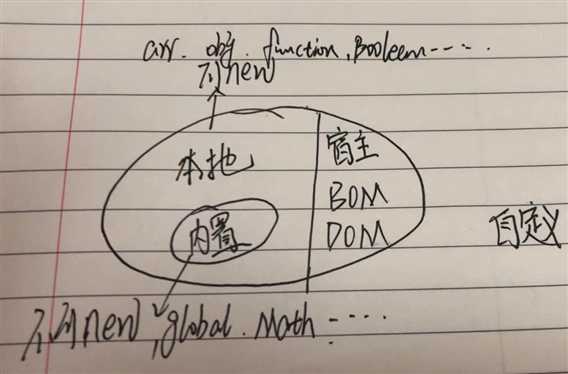 arr. obj. function, Booleem-----
可new
本地
宿主
BOM
内置
DOM
自定义
不可new, global. Math-----